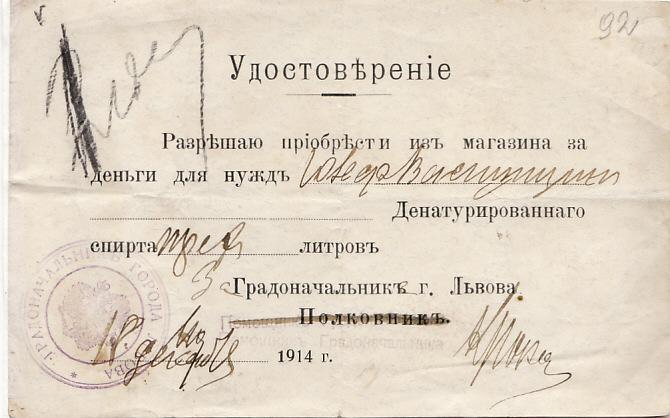 92
Удостовѣреніе
Разрѣшаю пріобрѣсти изъ магазина за
деньги для нуждъ
Денатурированнаго
спирта трех литровъ
За Градоначальника г. Львова
Полковникъ.
Помощникъ Градоначальника
ГРАДОНАЧАЛЬНИКЪ ГОРОДА ЛЬВОВА
18 декабря 1914 г.